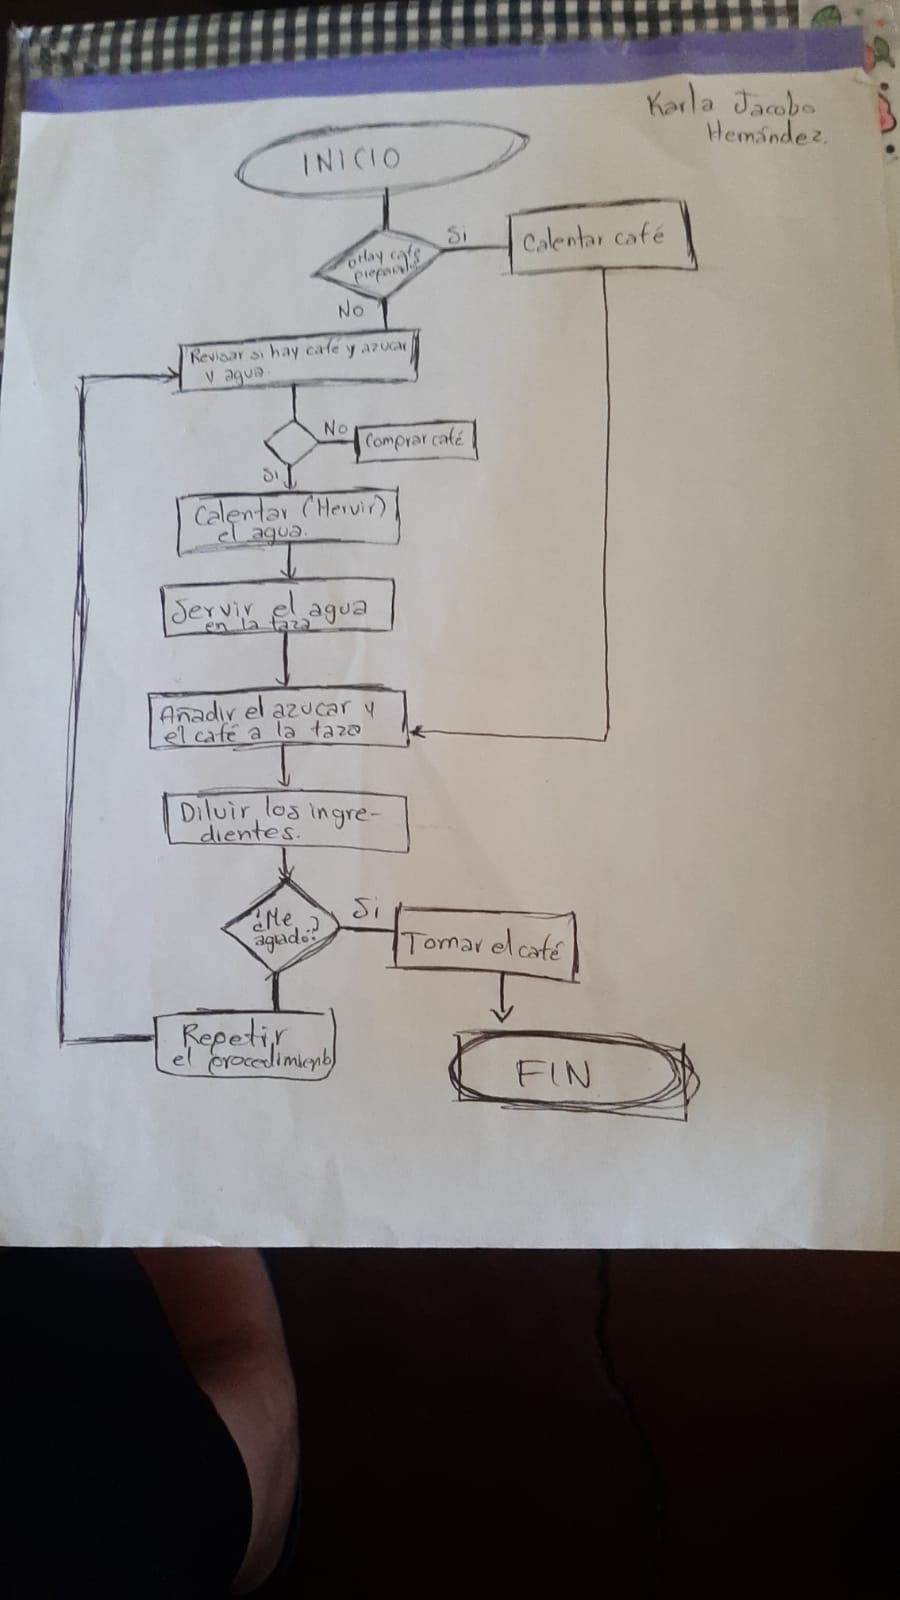 Karla Jacobo
Hernández.
INICIO
¿Hay café
preparado?
Si
Calentar café
No
Revisar si hay café y azucar
y agua.
No
Comprar café
Si
Calentar (Hervir)
el agua.
Servir el agua
en la taza
Añadir el azucar y
el café a la taza
Diluir los ingre-
dientes.
¿Me
agradó?
Si
Tomar el café
Repetir
el procedimiento
FIN